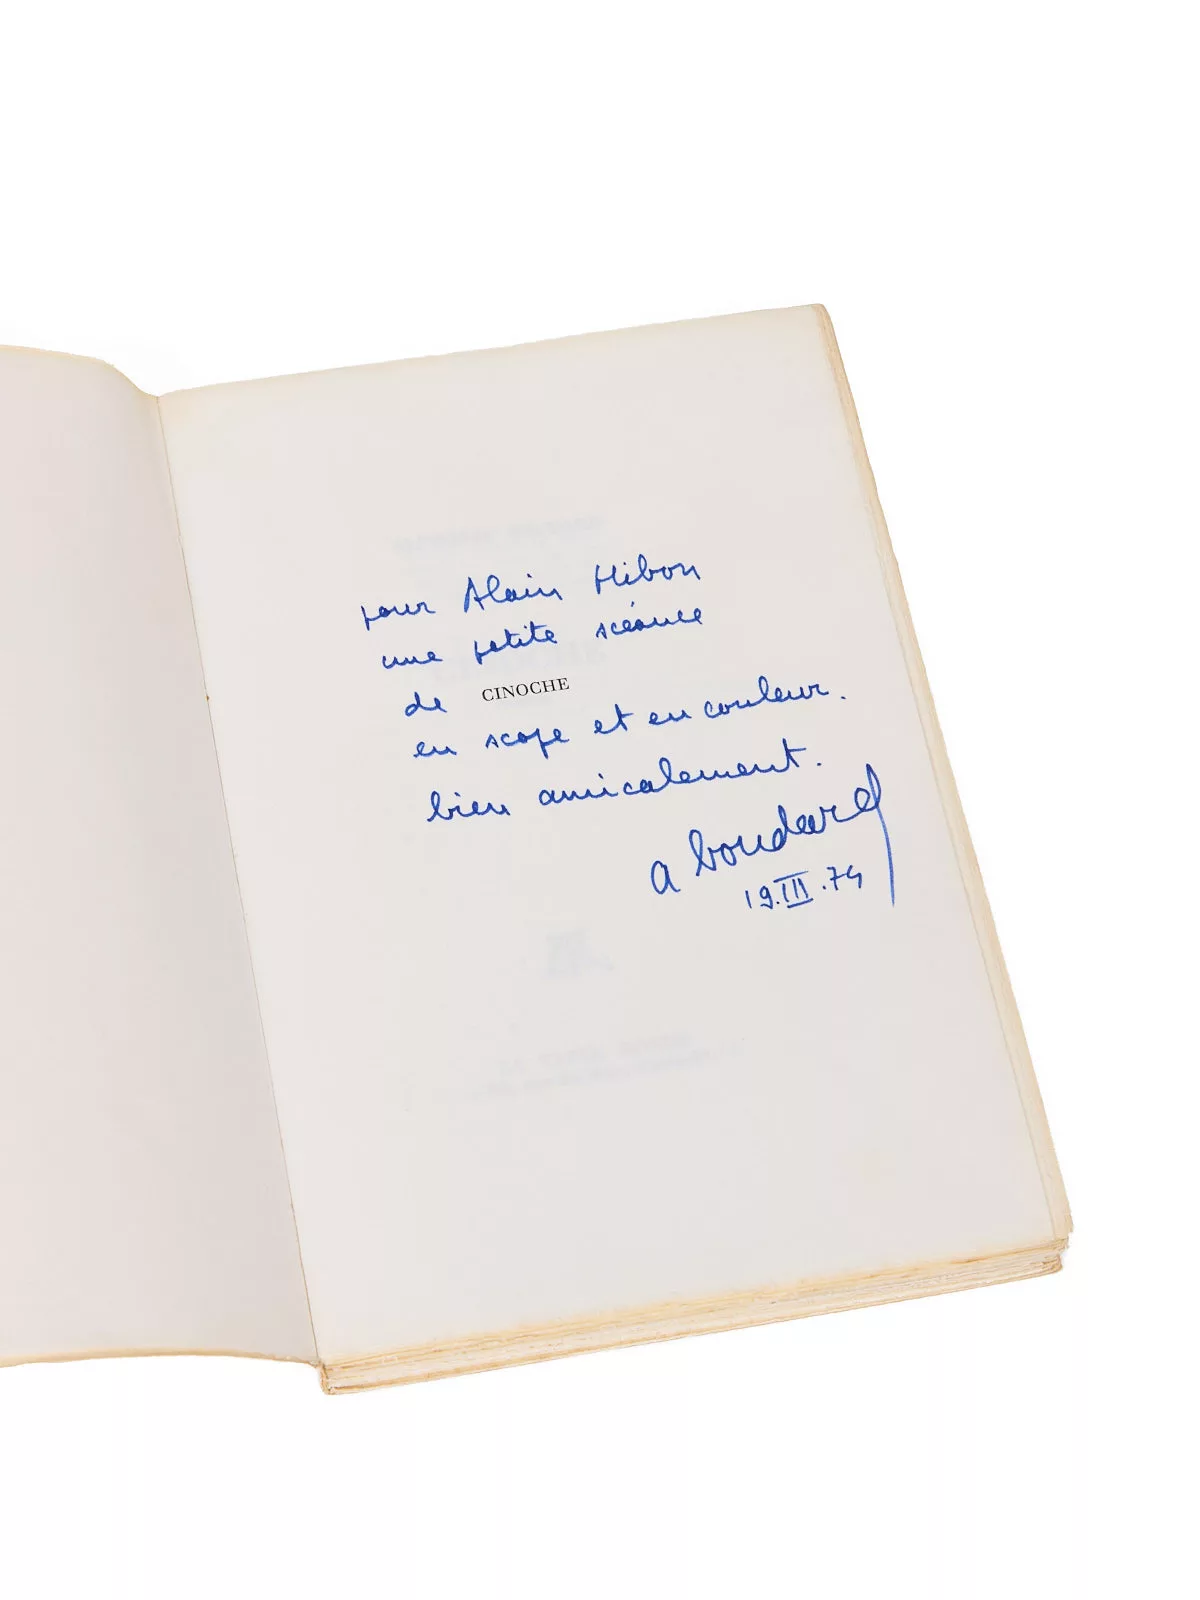 pour Alain Hibon
une petite scéance
de CINOCHE
en scope et en couleur.
bien amicalement.
a boudard
19.III.74